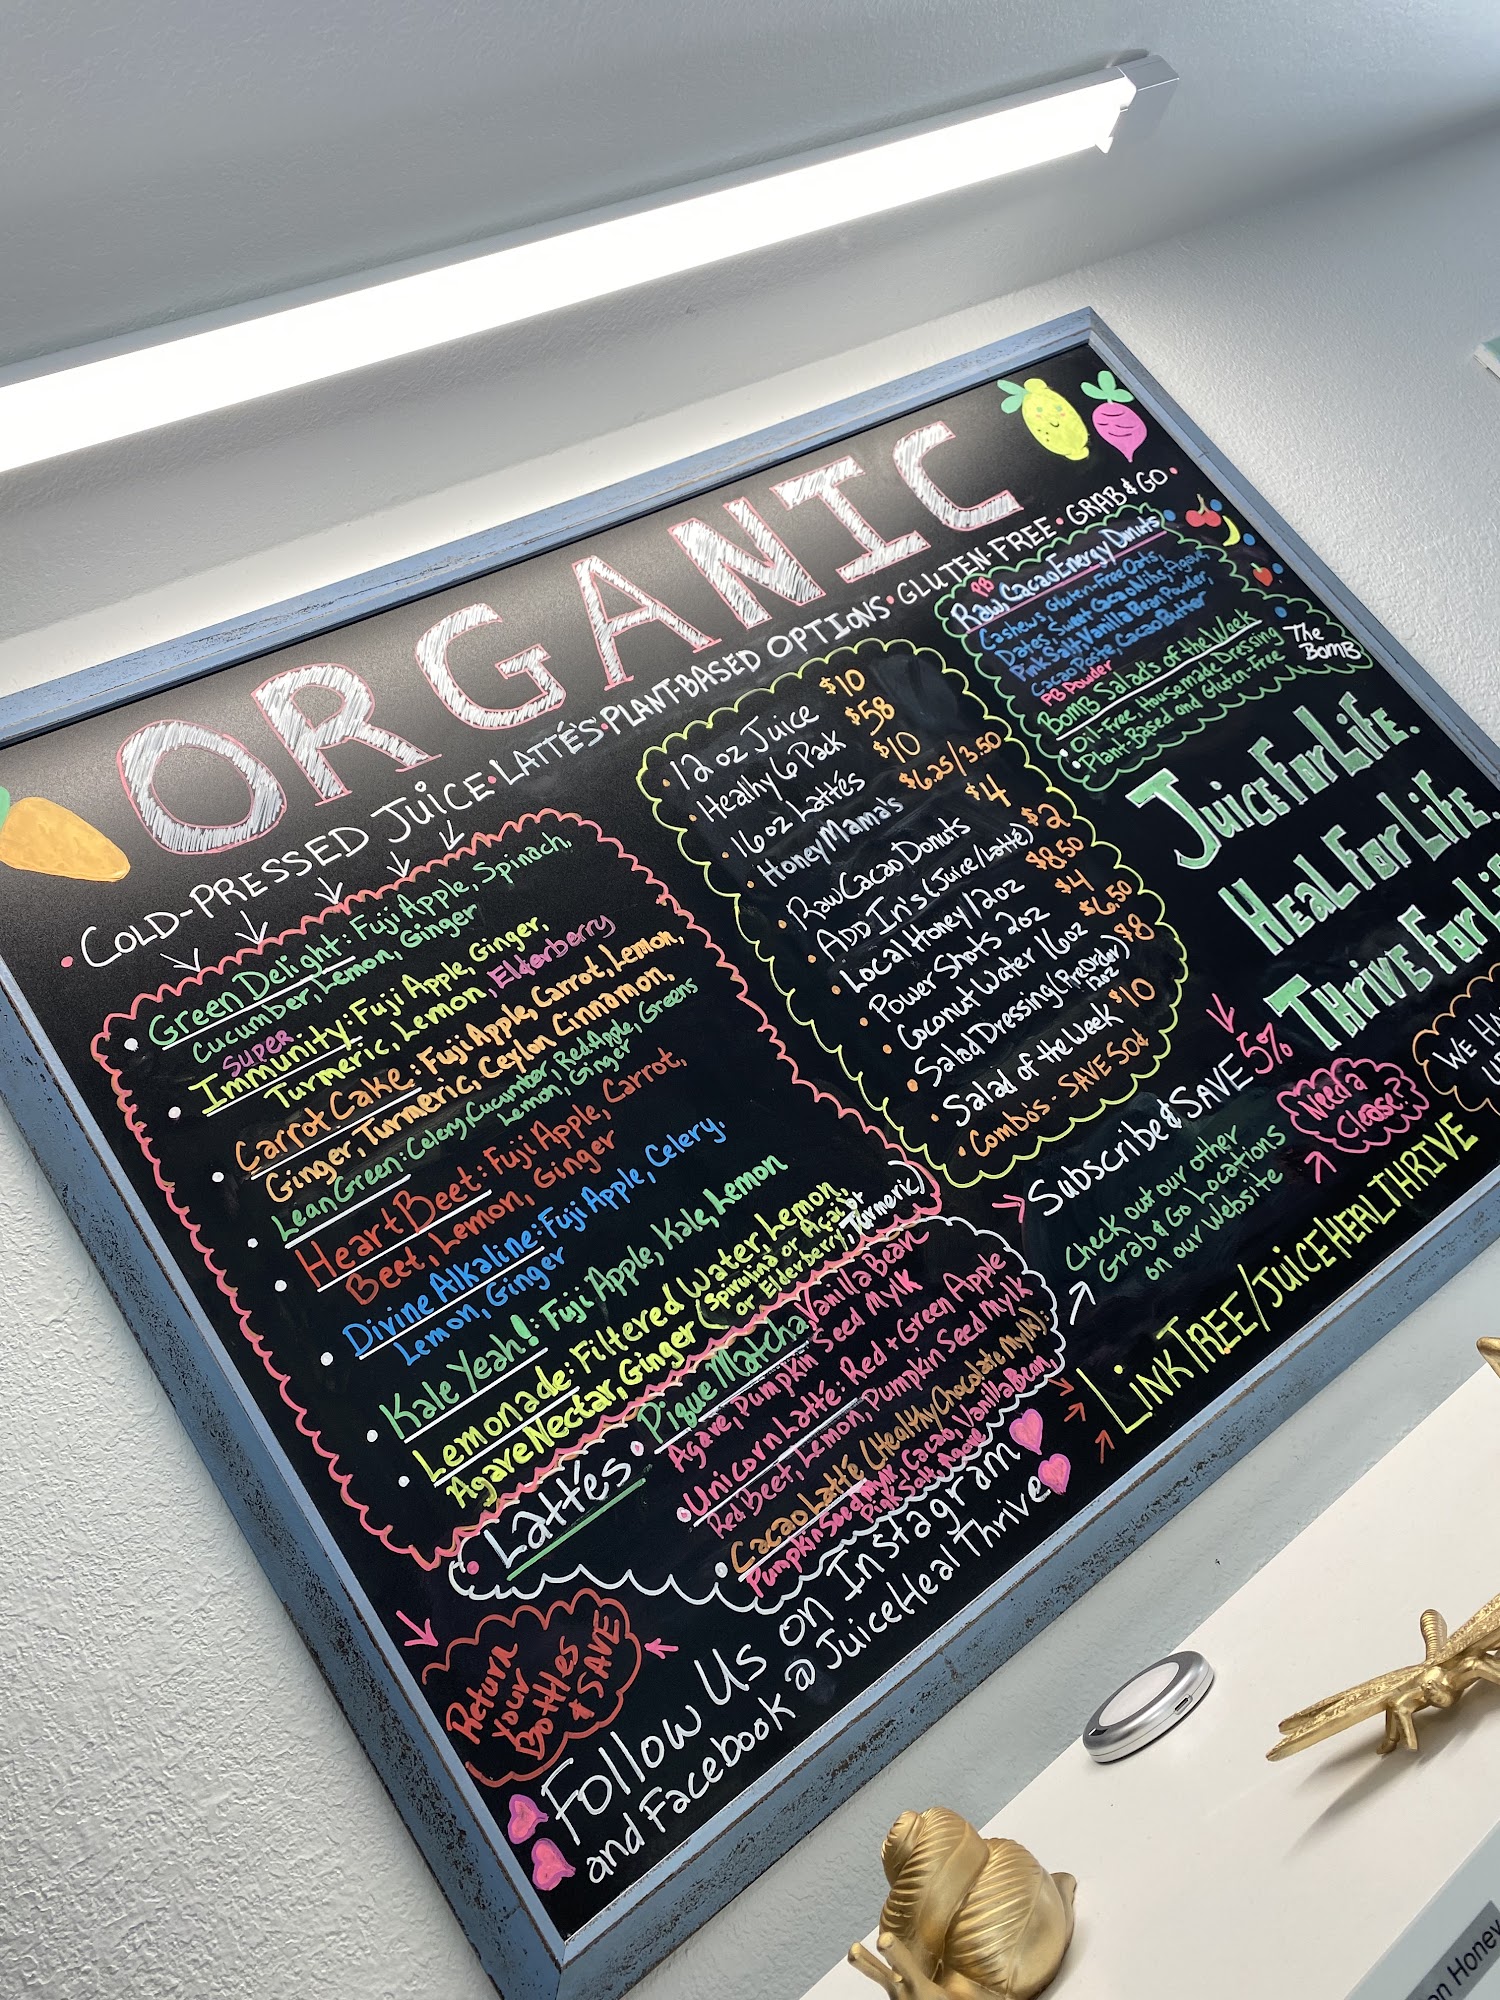 ORGANIC
• COLD-PRESSED JUICE • LATTÉS • PLANT-BASED OPTIONS • GLUTEN-FREE • GRAB & GO •
• Green Delight: Fuji Apple, Spinach,
Cucumber, Lemon, Ginger
SUPER
• Immunity: Fuji Apple, Ginger,
Turmeric, Lemon, Elderberry
• Carrot Cake: Fuji Apple, Carrot, Lemon,
Ginger, Turmeric, Ceylon Cinnamon,
• Lean Green: Celery, Cucumber, Red Apple, Greens
Lemon, Ginger
• Heart Beet: Fuji Apple, Carrot,
Beet, Lemon, Ginger
• Divine Alkaline: Fuji Apple, Celery,
Lemon, Ginger
• Kale Yeah!: Fuji Apple, Kale, Lemon
• Lemonade: Filtered Water, Lemon,
Agave Nectar, Ginger (Spirulina or Açai or
or Elderberry, Turmeric)
• Lattés
• Pique Matcha, Vanilla Bean
Agave, Pumpkin Seed Mylk
• Unicorn Latté: Red + Green Apple
Red Beet, Lemon, Pumpkin Seed Mylk
• Cacao Latté (Healthy Chocolate Mylk):
Pumpkin Seed Mylk, Cacao, Vanilla Bean,
Pink Salt, Agave
• 12 oz Juice $10
• Healthy 6 Pack $58
• 16 oz Lattés $10
• Honey Mama's $6.25/3.50
• Raw Cacao Donuts $4
• ADD In's (Juice/Latté) $2
• Local Honey 12oz $8.50
• Power Shots 2oz $4
• Coconut Water 16oz $6.50
• Salad Dressing (PreOrder) $8
12oz
• Salad of the Week $10
• Combo's - SAVE 50¢
PB
Raw Cacao Energy Donuts
Cashews, Gluten-Free Oats,
Dates, Sweet Cacao Nibs, Agave
Pink Salt, Vanilla Bean Powder,
Cacao Paste, Cacao Butter
PB Powder
BOMB Salad's of the Week
• Oil-Free, Housemade Dressing
• Plant-Based and Gluten-Free
The
BOMB
Juice For Life.
Heal For Life.
Thrive For
Subscribe & SAVE 5%
Need a
Cleanse?
WE HA
Check out our other
Grab & Go Locations
on our Website
LINKTREE/JUICEHEALTHRIVE
Return
your
Bottles
& SAVE
Follow Us on Instagram
and Facebook @JuiceHealThrive
on Honey